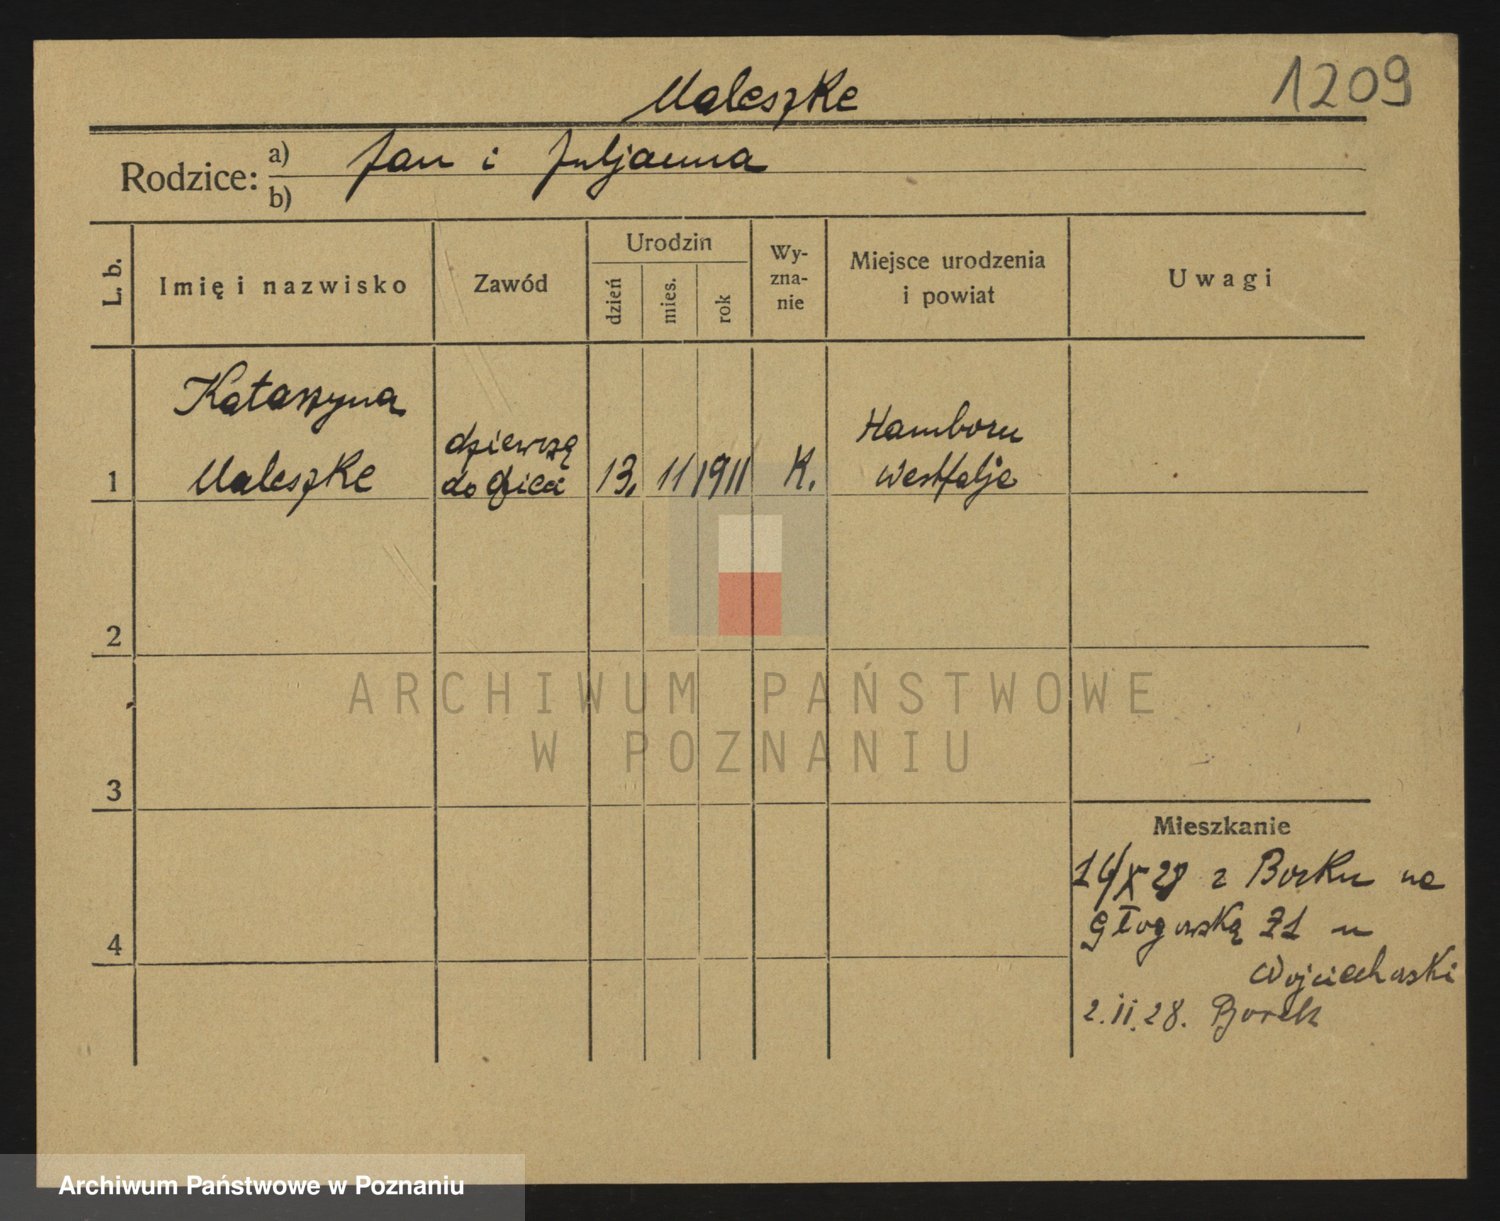 1209
Maleszke
Rodzice: a) Jan i Juljanna
b)
L. b.
Imię i nazwisko
Zawód
Urodzin
dzień
mies.
rok
Wy-
zna-
nie
Miejsce urodzenia
i powiat
Uwagi
1
Katarzyna
Maleszke
do dzieci
13.
11
1911
K.
Hamborn
Westfalja
2
3
4
Mieszkanie
z Borku na
Głogowską u
Wojciechowski
2.II.28. Borek
ARCHIWUM PAŃSTWOWE
W POZNANIU
Archiwum Państwowe w Poznaniu